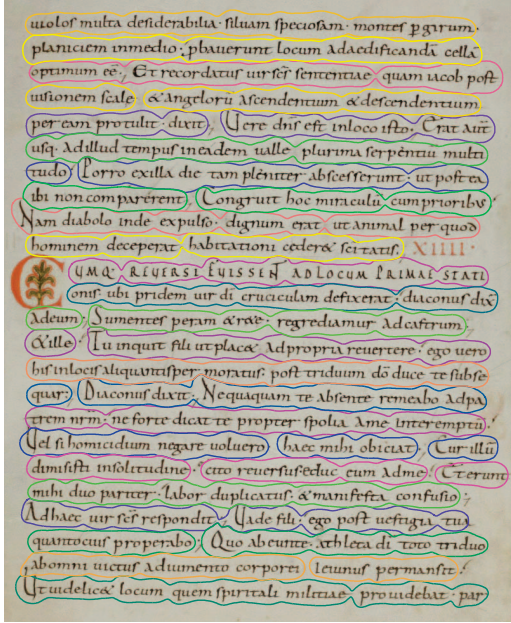 riuolos multa desiderabilia · siluam speciosam · montes ꝑ girum ·
planiciem in medio · ꝓbauerunt locum ad aedificandā cella
optimum eē · Et recordatus uir scs̄ sententiae quam iacob post
uisionem scale & angelorū ascendentium & descendentium
per eam protulit · dixit · Uere dn̄s est in loco isto · Erat aūt
usq· ad illud tempus in eadem ualle plurima serpentiū multi
tudo · Porro ex illa die tam pleniter abscesserunt · ut postea
ibi non comparerent · Congruit hoc miraculū cum prioribus
Nam diabolo inde expulso · dignum erat ut animal per quod
hominem deceperat habitationi ceder& sc̄itatis · XIIII ·
CUMQ· REUERSI FUISSENT AD LOCUM PRIMAE STATI
onis · ubi pridem uir dī cruciculam defixerat · diaconus dix̄
ad eum · Sumentes peram & r&e · regrediamur ad castrum ·
& ille · Tu inquit fili ut plac& ad propria reuertere · ego uero
his in locis aliquantisper moratus · post triduum dō duce te subse
quar · Diaconus dixit · Nequaquam te absente remeabo ad pa
trem nrm̄ · ne forte dicat te propter spolia a me interemptū ·
Uel si homicidium negare uoluero haec mihi obiciat · Cur illū
dimisisti in solitudine · cito reuersus educ eum ad me · Et erunt
mihi duo pariter · labor duplicatus · & manifesta confusio ·
Ad haec uir scs̄ respondit · Uade fili · ego post uestigia tua
quantocius properabo · Quo abeunte · athleta dī toto triduo
ab omni uictus adiumento corporei ieiunus permansit ·
Ut uidelic& locum quem spiritali militiae prouidebat · par